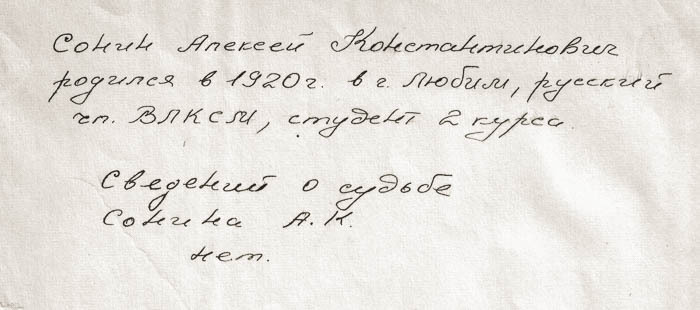 Сонин Алексей Константинович
родился в 1920 г. в г. Любим, русский
чл. ВЛКСМ, студент 2 курса.
Сведений о судьбе
Сонина А.К.
нет.